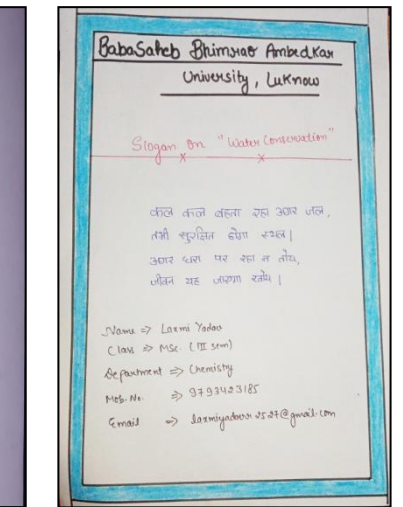 BabaSaheb Bhimrao Ambedkar
University, Luknow
Slogan on "Water Conservation"
कल कल बहता रहा अगर जल,
तभी सुरक्षित होगा स्थल।
अगर धरा पर रहा न तोय,
जीवन यह जाएगा खोय।
Name => Laxmi Yadav
Class => MSc. (III sem)
Department => Chemistry
Mob. No. => 9793423185
Email =>